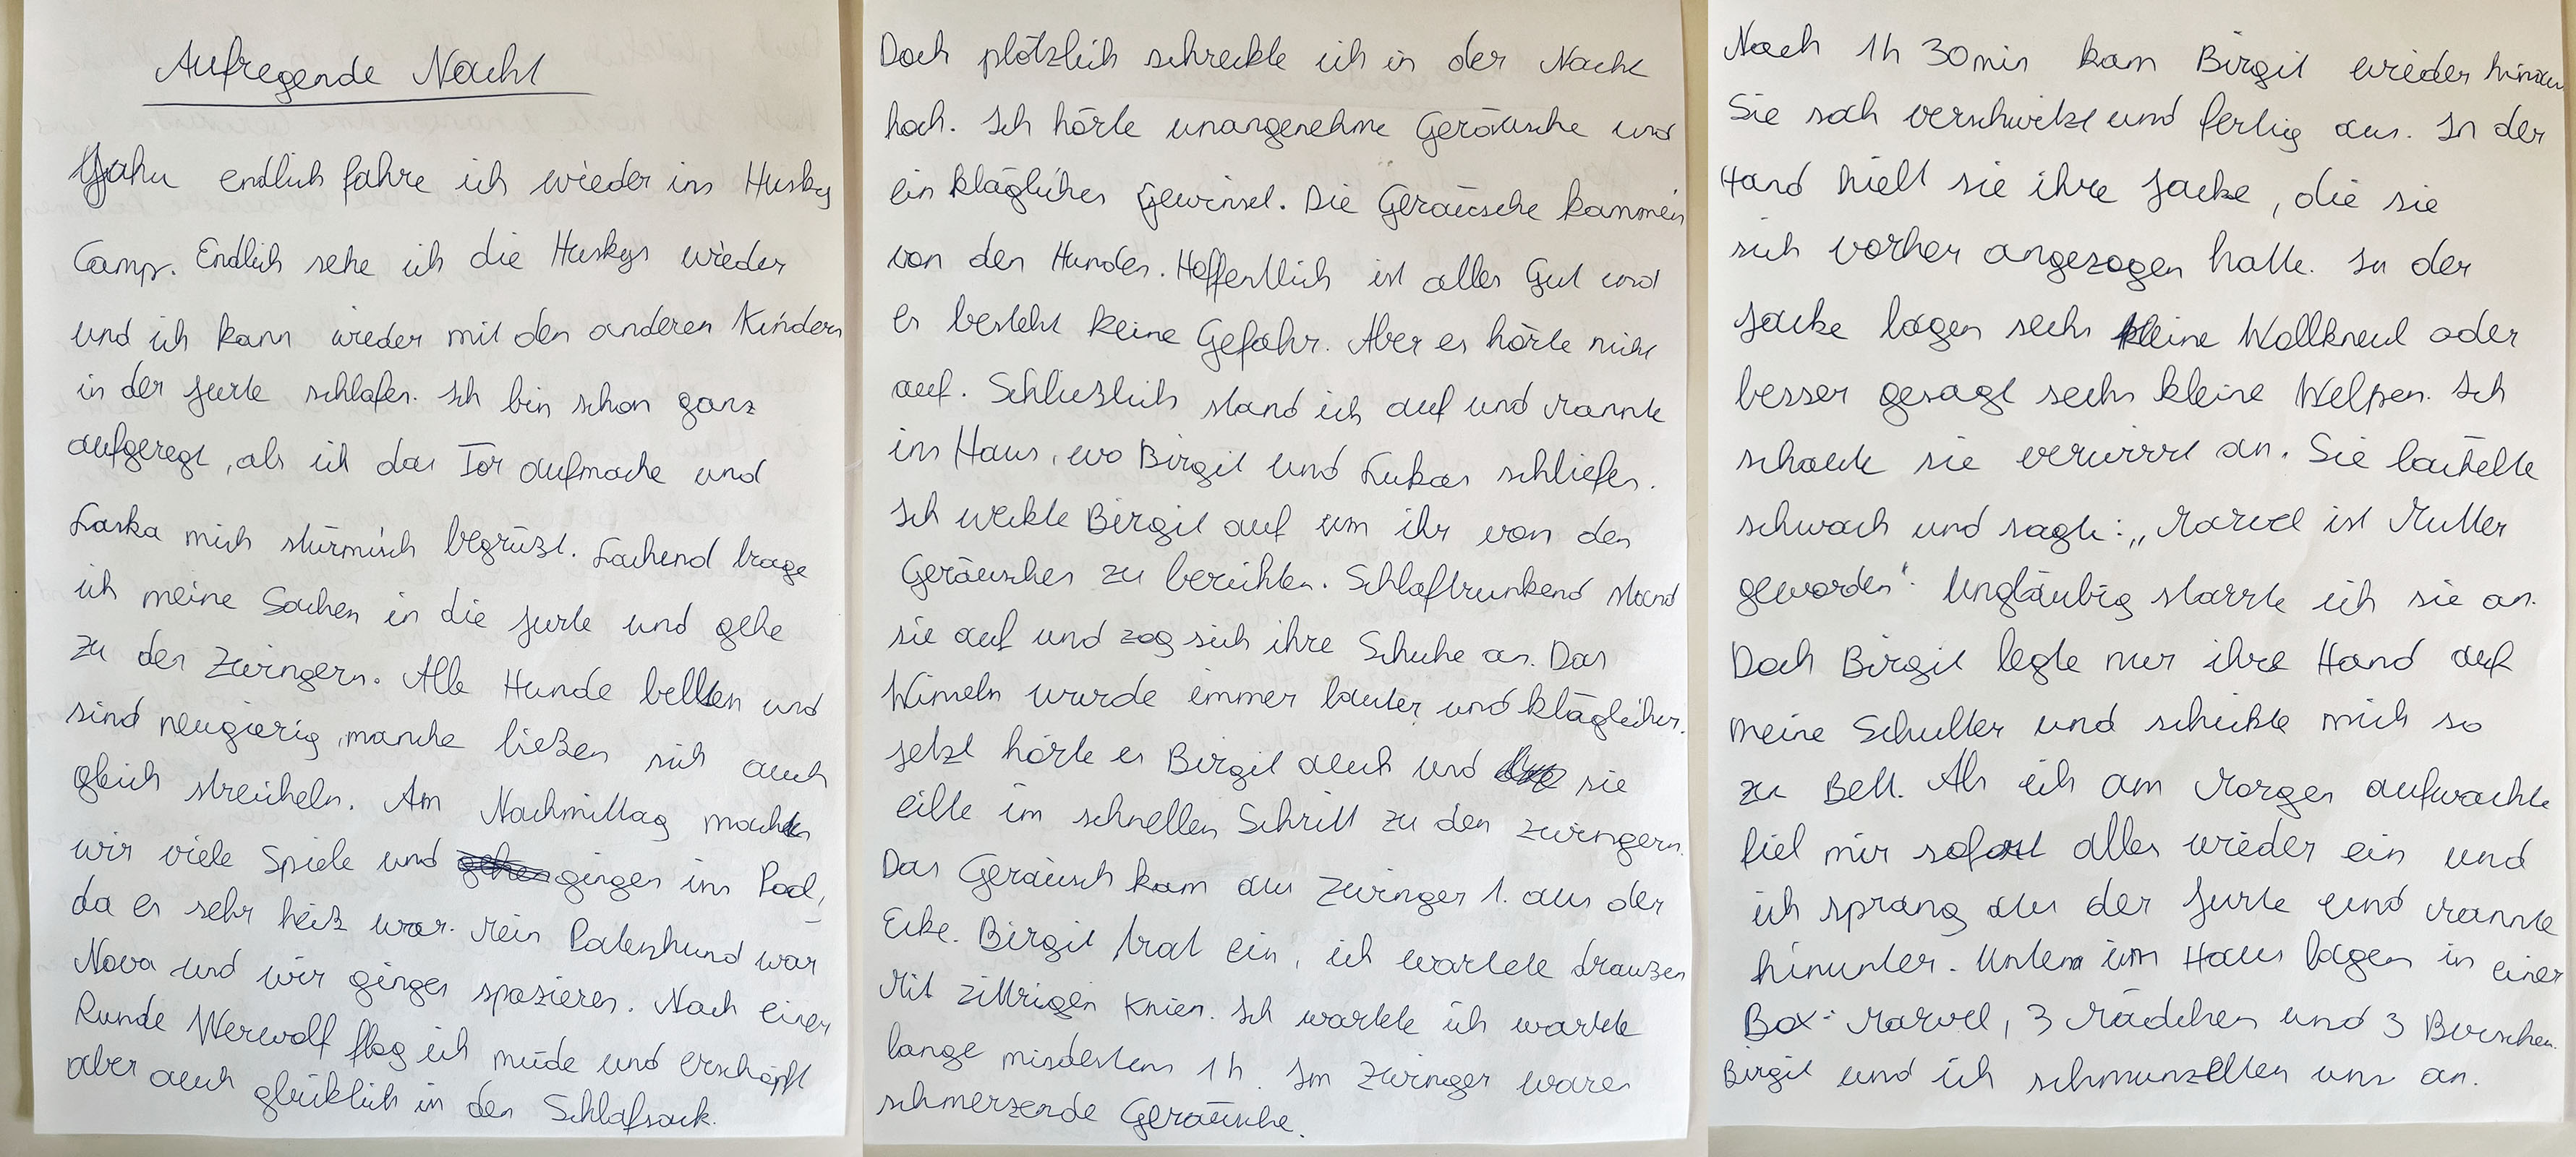 Aufregende Nacht
Yahu endlich fahre ich wieder ins Husky
Camp. Endlich sehe ich die Huskys wieder
und ich kann wieder mit den anderen Kindern
in der Jurte schlafen. Ich bin schon ganz
aufgeregt, als ich das Tor aufmache und
Laska mich stürmisch begrüßt. Lachend trage
ich meine Sachen in die Jurte und gehe
zu den Zwingern. Alle Hunde bellten und
sind neugierig, manche ließen sich auch
gleich streicheln. Am Nachmittag machten
wir viele Spiele und gingen ins Pool,
da es sehr heiß war. Mein Patenhund war
Nova und wir gingen spazieren. Nach einer
Runde Werwolf flog ich müde und erschöpft
aber auch glücklich in den Schlafsack.
Doch plötzlich schreckte ich in der Nacht
hoch. Ich hörte unangenehme Geräusche und
ein klägliches Gewinsel. Die Geräusche kammen
von den Hunden. Hoffentlich ist alles Gut und
es besteht keine Gefahr. Aber es hörte nicht
auf. Schließlich stand ich auf und rannte
ins Haus, wo Birgit und Lukas schliefen.
Ich weckte Birgit auf um ihr von den
Geräuschen zu berichten. Schlaftrunkend stand
sie auf und zog sich ihre Schuhe an. Das
Wimeln wurde immer lauter und kläglicher.
Jetzt hörte es Birgit auch und sie
eilte im schnellen Schritt zu den Zwingern.
Das Geräusch kam aus Zwinger 1. aus der
Ecke. Birgit trat ein, ich wartete draußen
Mit zittrigen Knien. Ich wartete ich wartete
lange mindestens 1h. Im Zwinger waren
schmerzende Geräusche.
Nach 1h 30min kam Birgit wieder
Sie sah verschwitzt und fertig aus. In der
Hand hielt sie ihre Jacke, die sie
sich vorher angezogen hatte. In der
Jacke lagen sechs kleine Wollkneul oder
besser gesagt sechs kleine Welpen. Ich
schaute sie verwirrt an. Sie lächelte
schwach und sagte: „Marvel ist Mutter
geworden". Ungläubig starrte ich sie an.
Doch Birgit legte nur ihre Hand auf
meine Schulter und schickte mich so
zu Bett. Als ich am Morgen aufwachte
fiel mir sofort alles wieder ein und
ich sprang aus der Jurte und rannte
hinunter. Unten im Haus lagen in einer
Box: Marvel, 3 Mädchen und 3 Burschen.
Birgit und ich schmunzelten uns an.